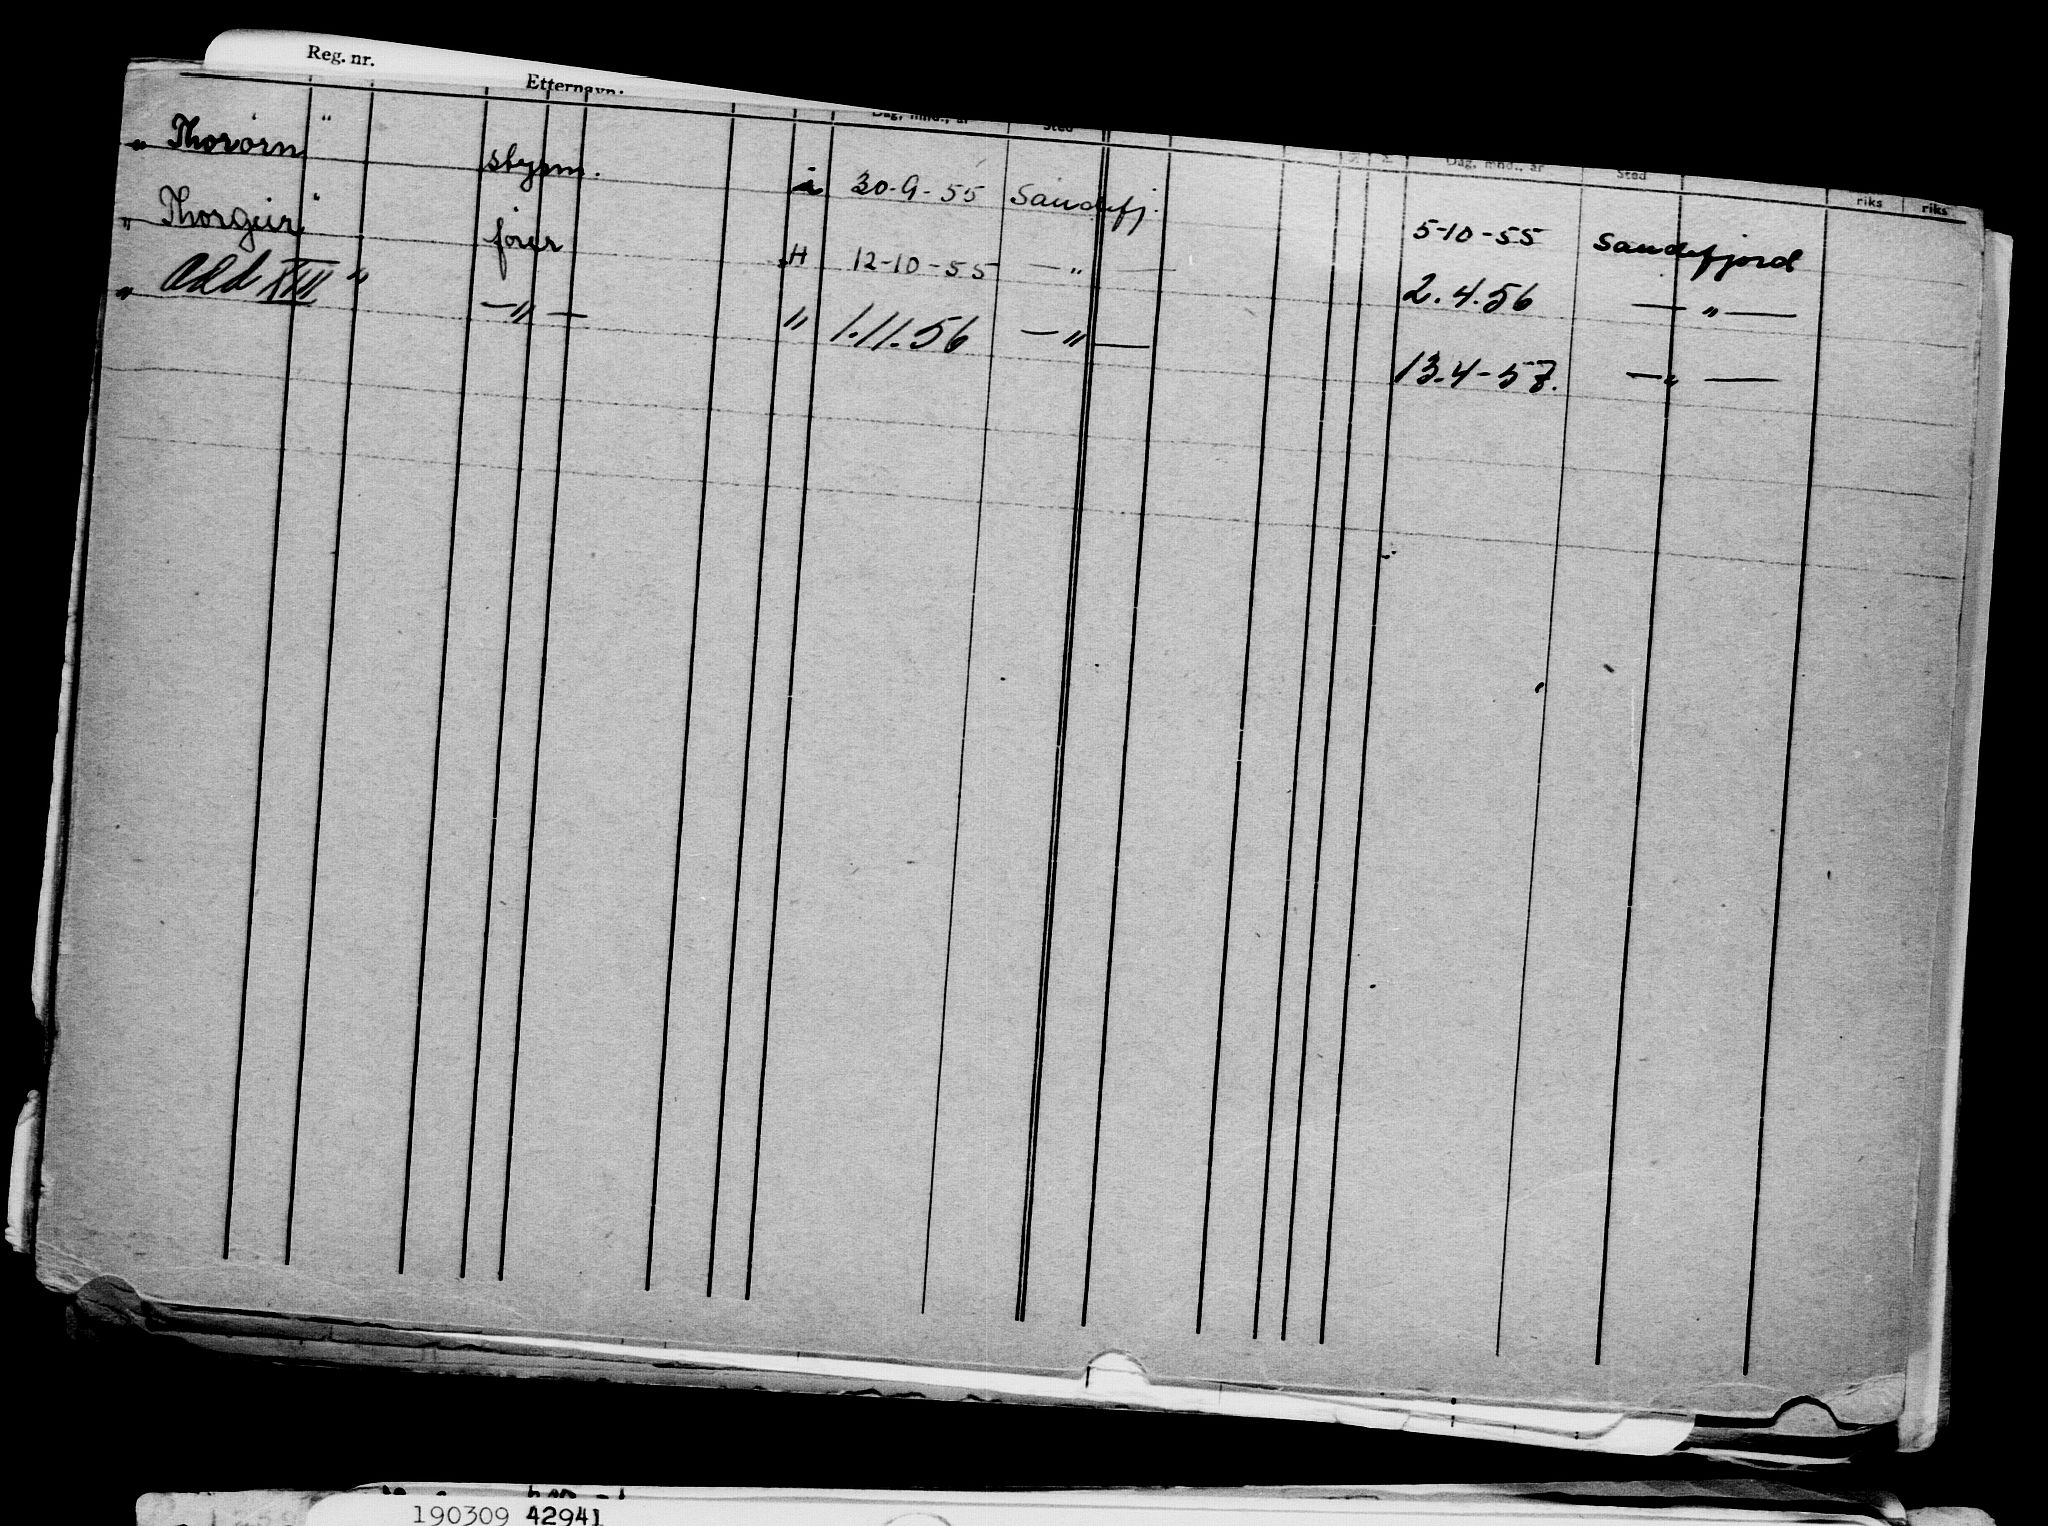 Reg. nr.
Etternavn:
Dag, mnd., år Sted Dag, mnd., år Sted riks riks
" Thorörn " styrm. 30-9-55 Sandefj. 5-10-55 Sandefjord
" Thorgeir " fører H 12-10-55 — " — 2.4.56 — " —
" Odd XIII " — " — " 1.11.56 — " — 13.4-57. — " —
190309 42941